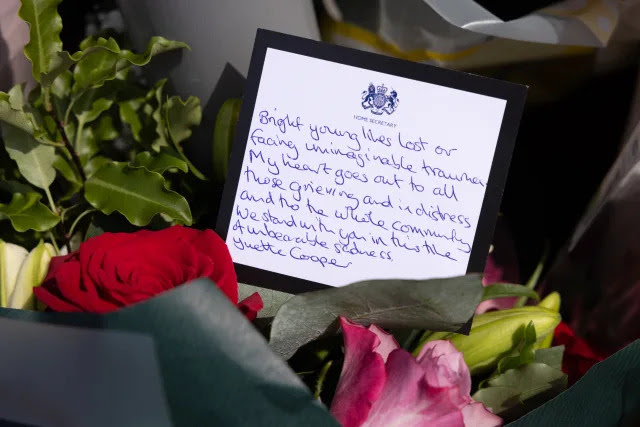 HOME SECRETARY
Bright young lives lost or
facing unimaginable trauma.
My heart goes out to all
those grieving and in distress
and to the whole community
We stand with you in this time
of unbearable sadness.
Yvette Cooper